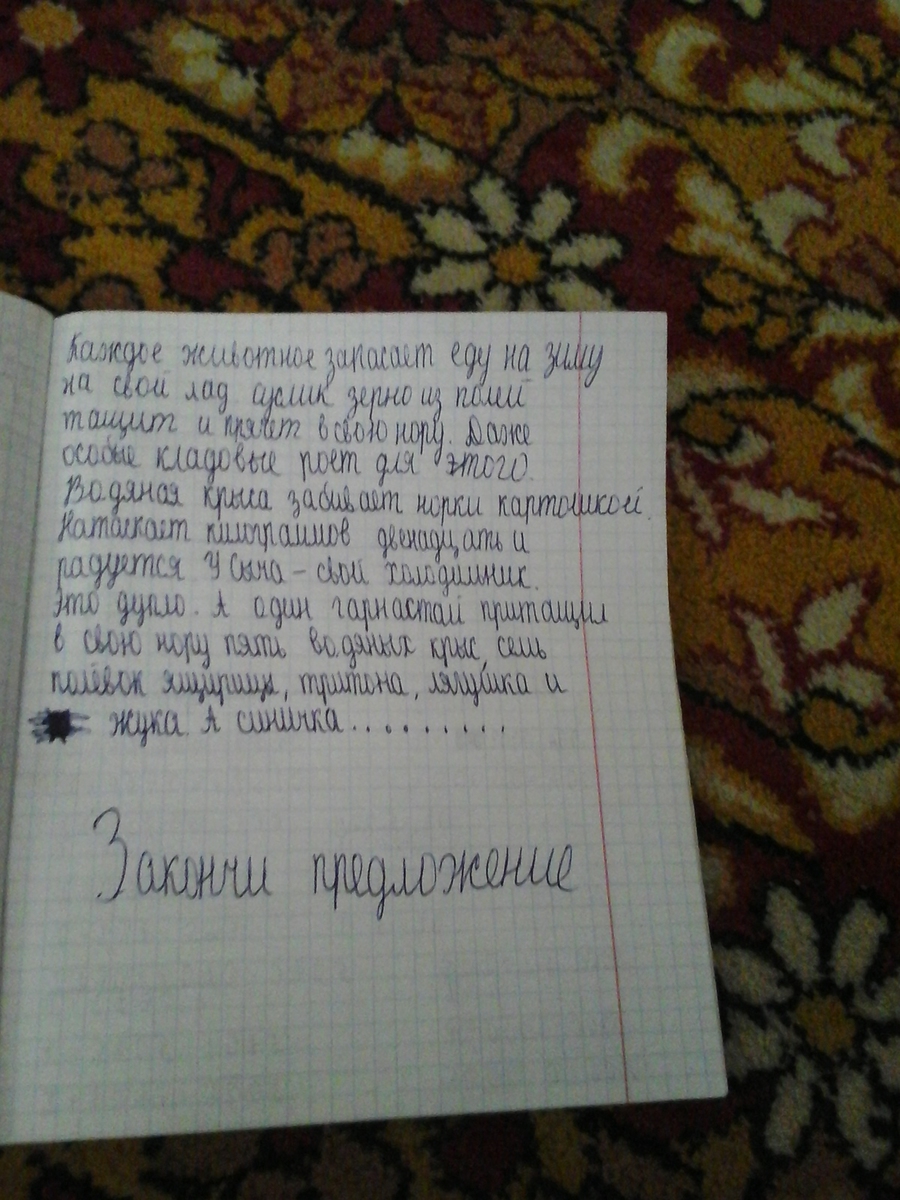 Каждое животное запасает еду на зиму
на свой лад суслик зерно из полей
тащит и прячет в свою нору. Даже
особые кладовые роет для этого.
Водяная крыса забивает норки картошкой.
Натаскает килограммов двенадцать и
радуется У Сыча - свой холодильник.
Это дупло. А один гарнастай притащил
в свою нору пять водяных крыс, семь
полёвок ящирица, тритона, лягушка и
жука. А синичка.........
Закончи предложение